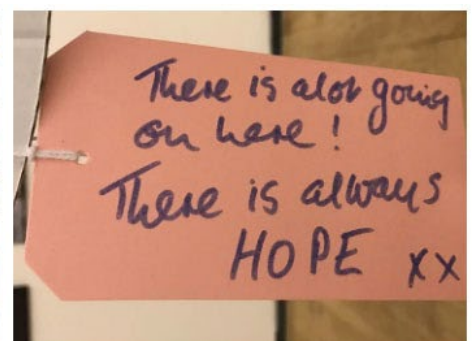 There is alot going
on here!
There is always
HOPE xx